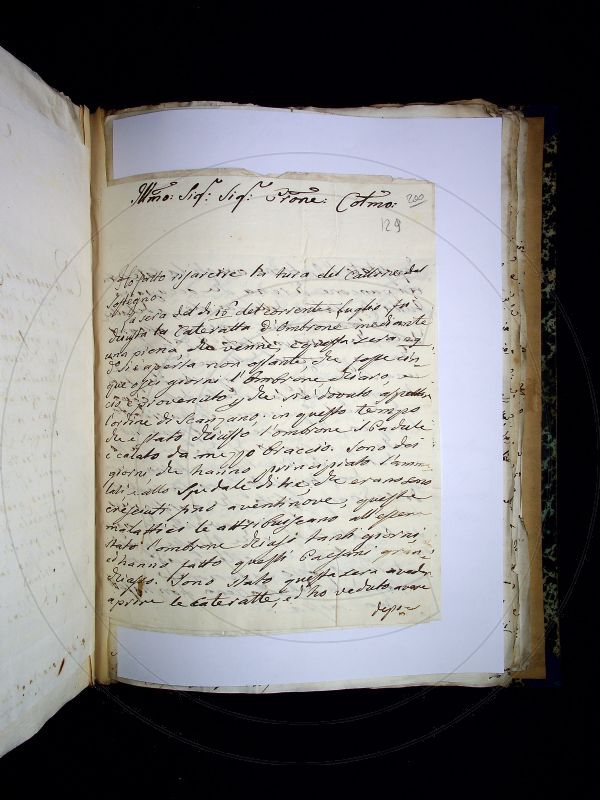 Illmo: Sig: Sig: Prone: Colmo:
200
129
Ho fatto risarcire la tura del Callone del
Sostegno.
La sera del dì 16 del corrente luglio, fù
chiusa la Cateratta d'Ombrone mediante
una piena che venne, e questa sera
si è aperta non ostante, che fosse cin-
que o sei giorni l'Ombrone chiaro, e
ciò è provenuto che si è dovuto aspettare
l'ordine di Scarpano, in questo tempo
che è stato chiuso l'ombrone il Padule
è calato da mezzo braccio. Sono dei
giorni, che hanno principiato l'amma-
lati allo Spedale di tre, che erano sono
cresciuti fino a ventinove, queste
malattie le attribuiscano all'essere
stato l'ombrone chiuso tanti giorni,
ed hanno fatto questi Paesani gran
chiasso. Sono stato questa sera a veder
aprire le Cateratte, ed ho veduto avere
depo